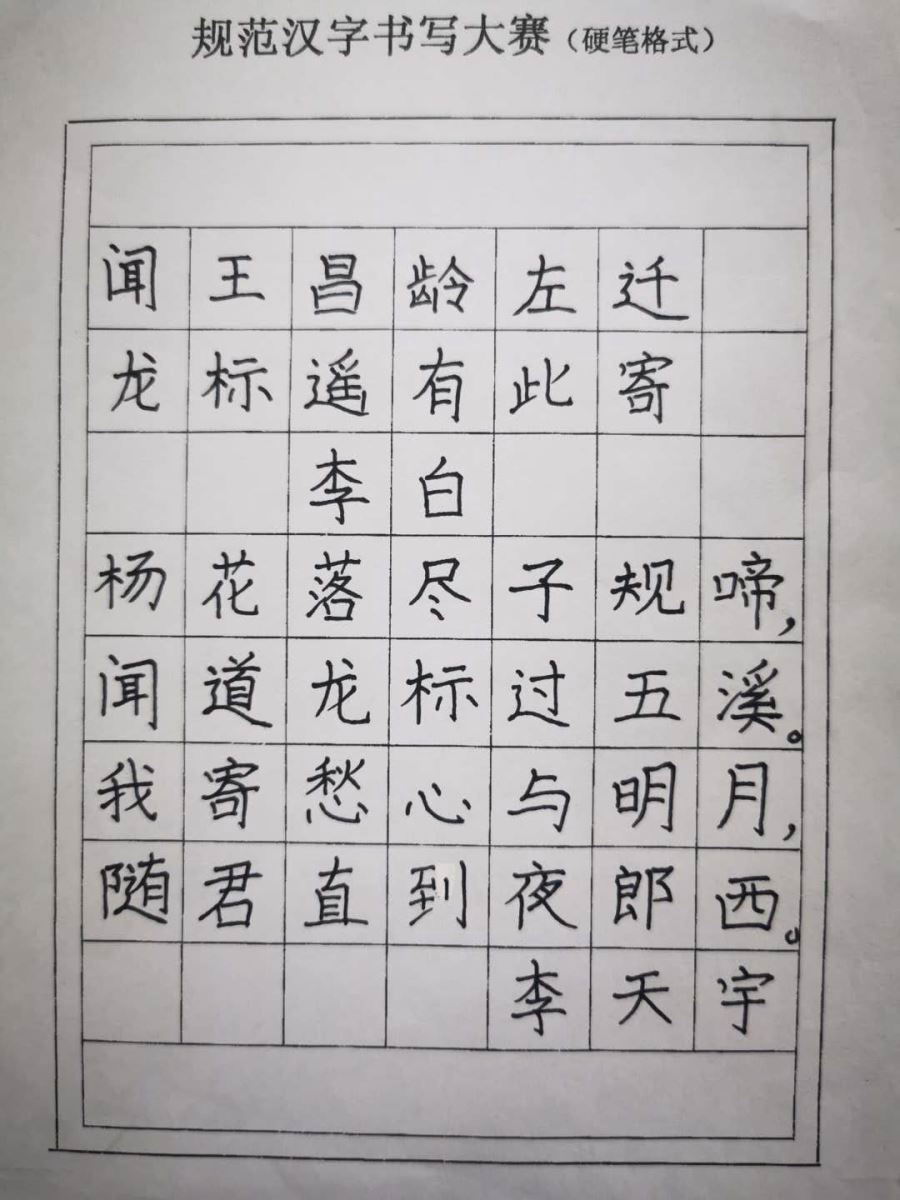 规范汉字书写大赛（硬笔格式）
闻王昌龄左迁
龙标遥有此寄
李白
杨花落尽子规啼，
闻道龙标过五溪。
我寄愁心与明月，
随君直到夜郎西。
李天宇